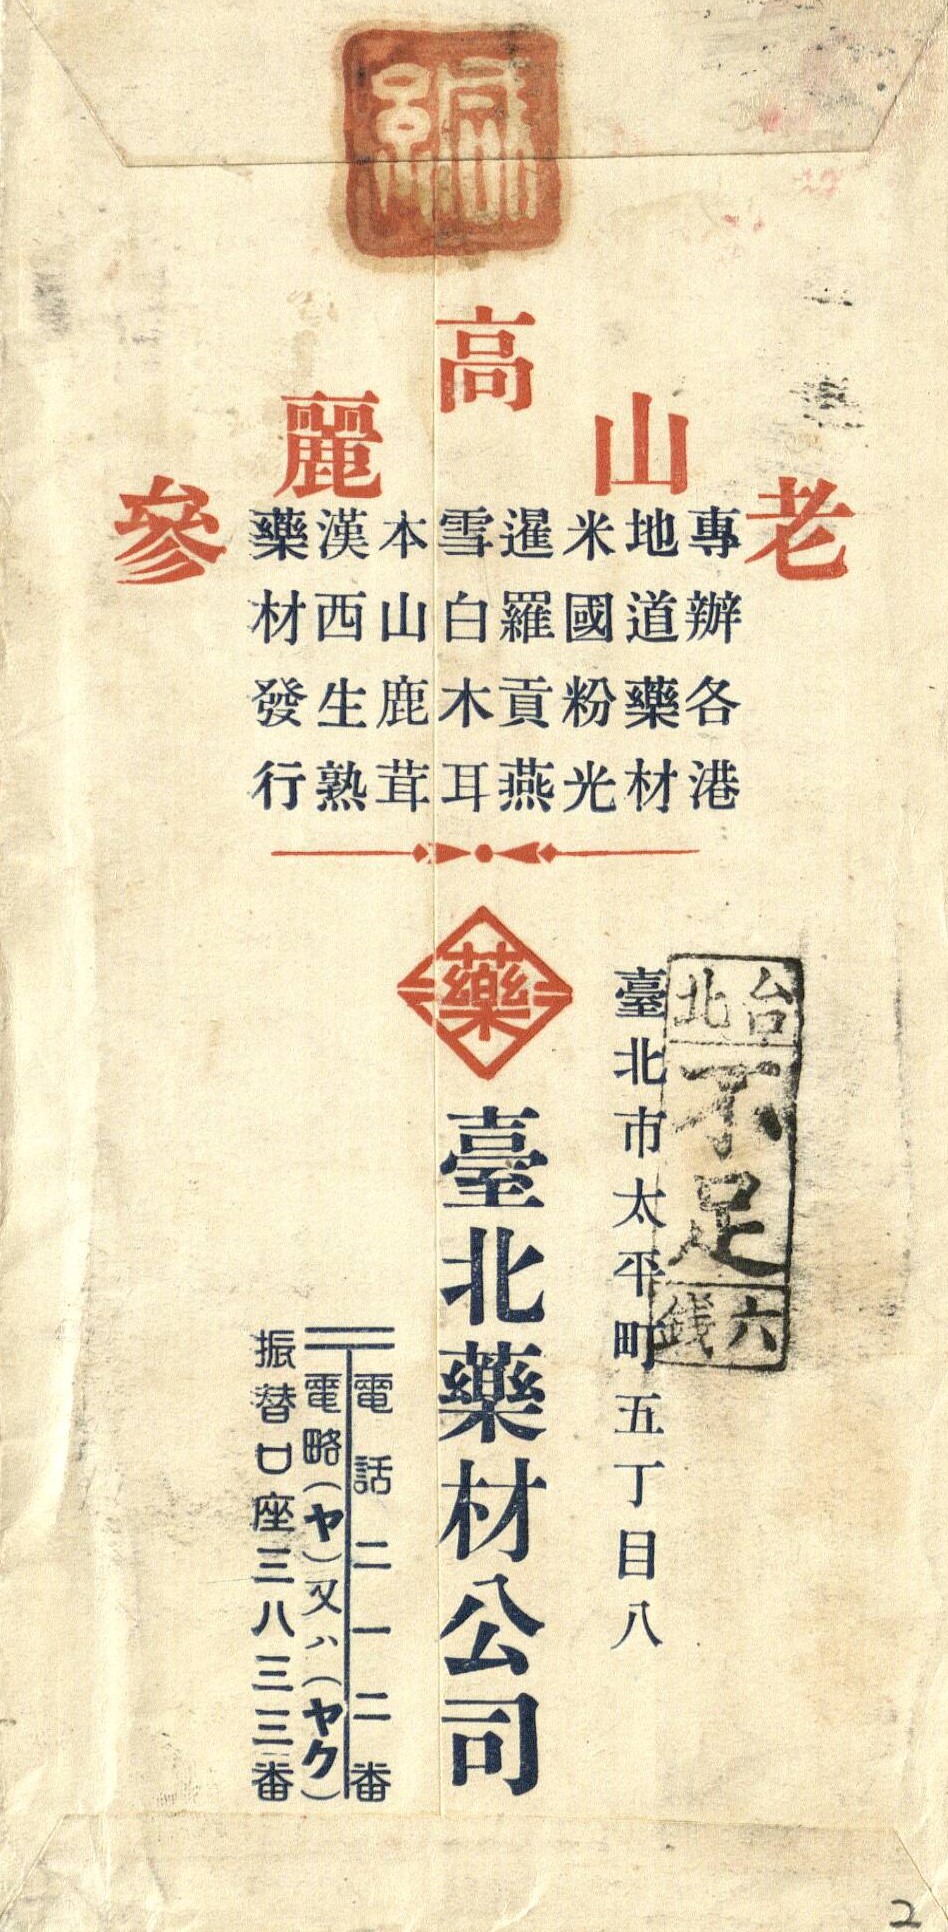 緘
老山高麗參
專辦各港
地道藥材
米國粉光
暹羅貢燕
雪白木耳
本山鹿茸
漢西生熟
藥材發行
藥
台北
不足
六錢
臺北市太平町五丁目八
臺北藥材公司
電話二一二番
電略(ヤ)又ハ(ヤク)
振替口座三八三三番
2